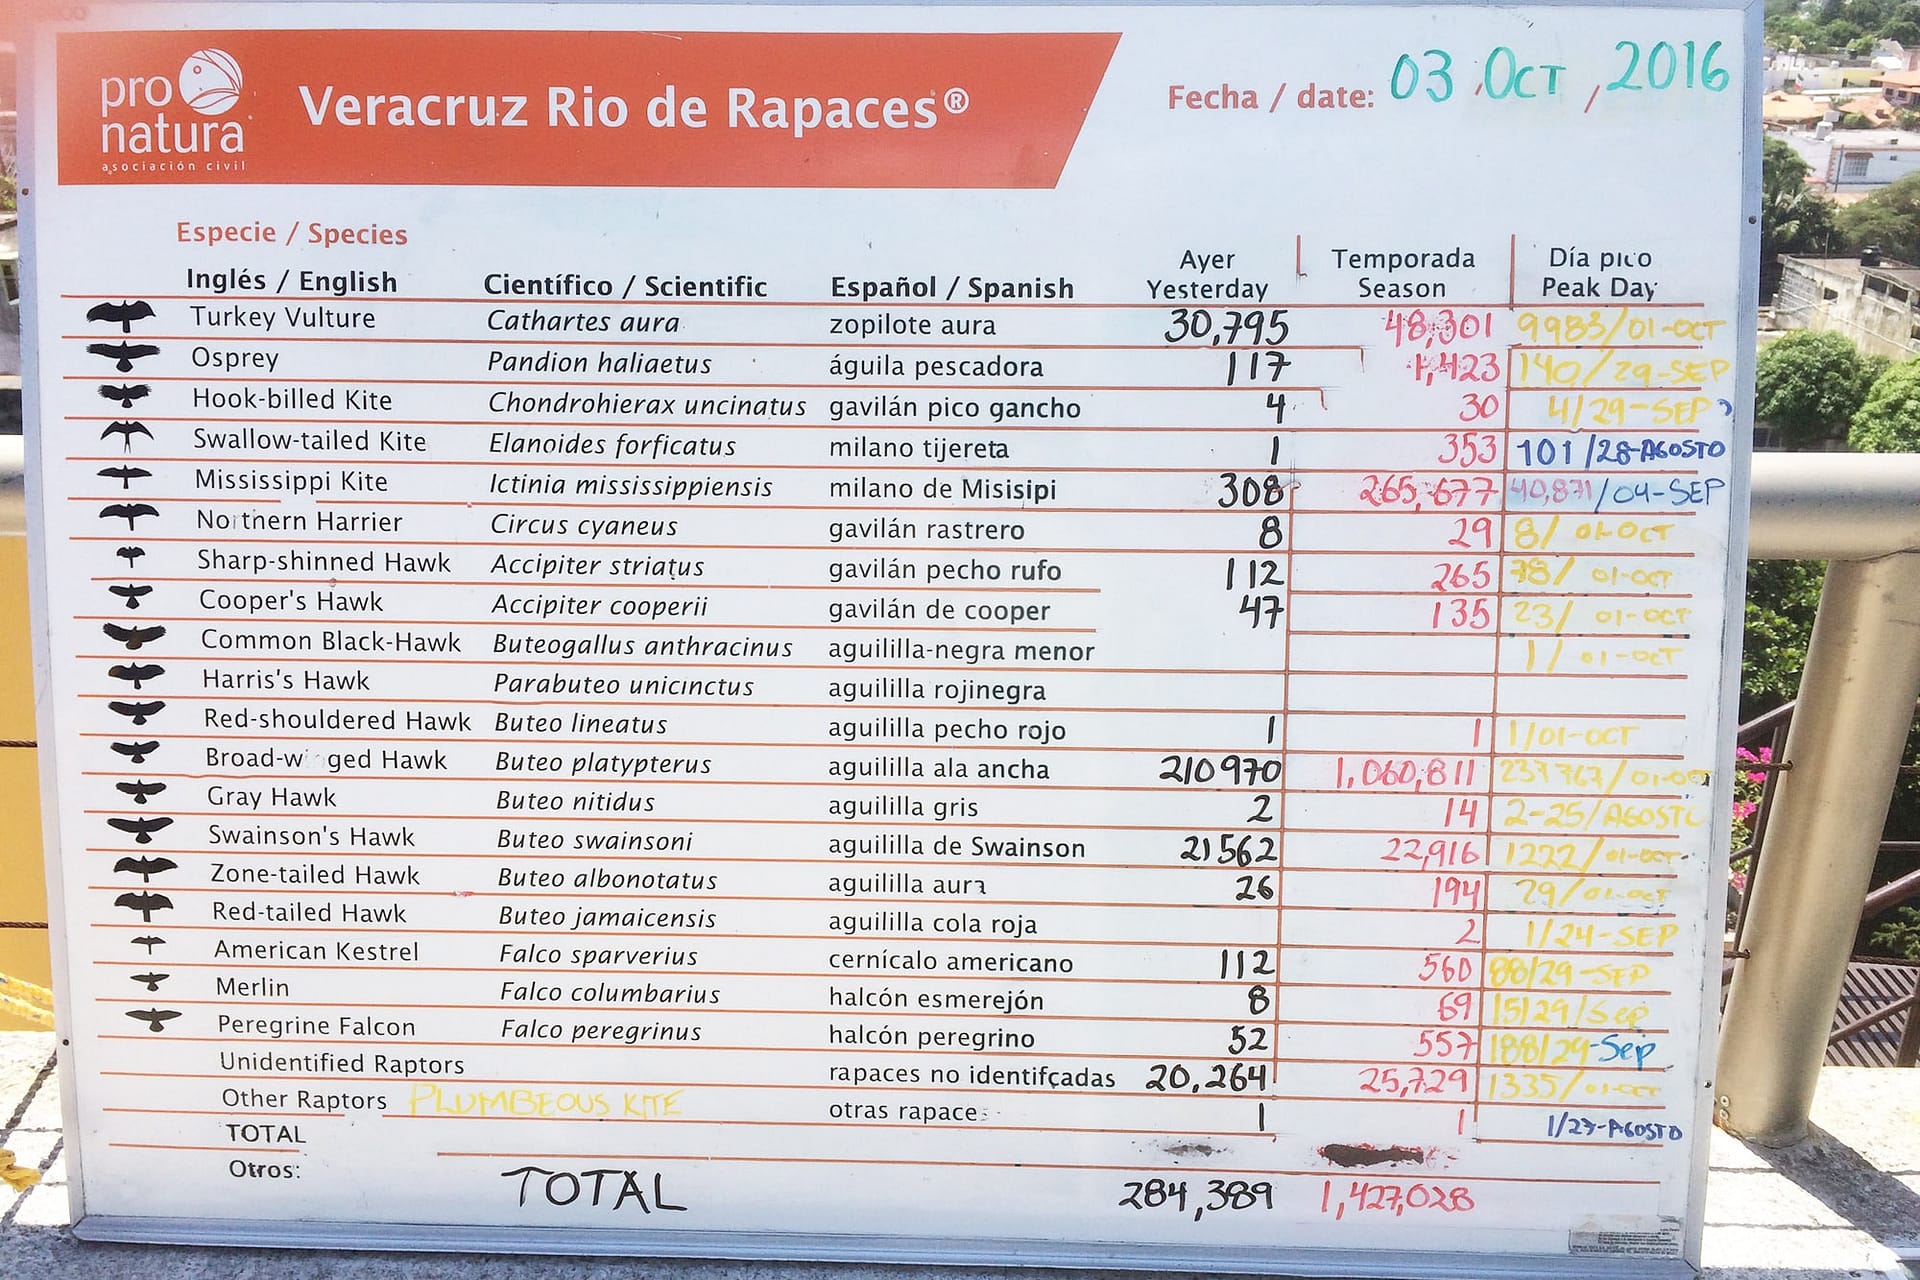 pro natura
asociación civil
Veracruz Rio de Rapaces®
Fecha / date: 03 Oct, 2016
Especie / Species
Inglés / English Científico / Scientific Español / Spanish Ayer Yesterday Temporada Season Día pico Peak Day
Turkey Vulture Cathartes aura zopilote aura 30,795 48,301 9983/01-OCT
Osprey Pandion haliaetus águila pescadora 117 1,423 140/29-SEP
Hook-billed Kite Chondrohierax uncinatus gavilán pico gancho 4 30 4/29-SEP
Swallow-tailed Kite Elanoides forficatus milano tijereta 1 353 101/28-AGOSTO
Mississippi Kite Ictinia mississippiensis milano de Misisipi 308 265,677 40,871/04-SEP
Northern Harrier Circus cyaneus gavilán rastrero 8 29 8/01-OCT
Sharp-shinned Hawk Accipiter striatus gavilán pecho rufo 112 265 78/01-OCT
Cooper's Hawk Accipiter cooperii gavilán de cooper 47 135 23/01-OCT
Common Black-Hawk Buteogallus anthracinus aguililla-negra menor 1/01-OCT
Harris's Hawk Parabuteo unicinctus aguililla rojinegra
Red-shouldered Hawk Buteo lineatus aguililla pecho rojo 1 1 1/01-OCT
Broad-winged Hawk Buteo platypterus aguililla ala ancha 210970 1,060,811 237767/01-OCT
Gray Hawk Buteo nitidus aguililla gris 2 14 2-25/AGOSTO
Swainson's Hawk Buteo swainsoni aguililla de Swainson 21562 22,916 1222/01-OCT
Zone-tailed Hawk Buteo albonotatus aguililla aura 26 194 29/01-OCT
Red-tailed Hawk Buteo jamaicensis aguililla cola roja 2 1/24-SEP
American Kestrel Falco sparverius cernícalo americano 112 560 88/29-SEP
Merlin Falco columbarius halcón esmerejón 8 69 15/29/Sep
Peregrine Falcon Falco peregrinus halcón peregrino 52 557 188/29-Sep
Unidentified Raptors rapaces no identifçadas 20,264 25,729 1335/01-OCT
Other Raptors PLUMBEOUS KITE otras rapaces 1 1 1/27-AGOSTO
TOTAL
Otros: TOTAL 284,389 1,427,028